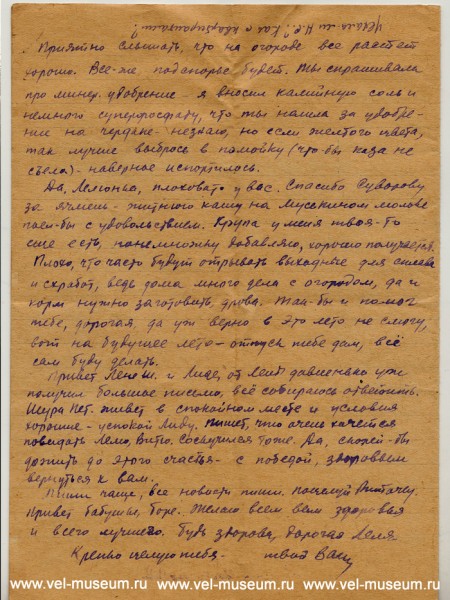 Уехал ли Н.С.? Как с квартирантами?
Приятно слышать, что на огороде все растет
хорошо. Все-же подспорье будет. Ты спрашивала
про минер. удобрение - я вносил калийную соль и
немного суперфосфату, что ты нашла за удобре-
ние на чердаке - незнаю, но если желтого цвета,
так лучше выбрось в помойку (что-бы коза не
съела) - наверное испортилось.
Да, Лелюнька, плоховато у вас. Спасибо Суворову
за ячмень - житную кашу на Мусенкином молоке
поел-бы с удовольствием. Крупа у меня твоя-то
еще есть, понемножку добавляю, хорошо получается.
Плохо, что часто будут отрывать выходные для сплава
и схработ, ведь дома много дела с огородом, да и
корм нужно заготовить, дрова. Так-бы и помог
тебе, дорогая, да уж верно в это лето не смогу,
вот на будущее лето - отпуск тебе дам, всё
сам буду делать.
Привет Лене Ш. и Лиде, от Лены давненько уж
получил большое письмо, всё собираюсь ответить.
Шура Пет. живет в спокойном месте и условия
хорошие - успокой Лиду. Пишет, что очень хочется
повидать Лелю, Витю. Соскучился тоже. Да, скорей-бы
дожить до этого счастья - с победой, здоровьем
вернуться к вам.
Пиши чаще, все новости пиши. Поцелуй
Привет бабушке, Боре. Желаю всем вам здоровья
и всего лучшего. Будь здорова, дорогая Леля
Крепко целую тебя - твой
www.vel-museum.ru www.vel-museum.ru www.vel-museum.ru